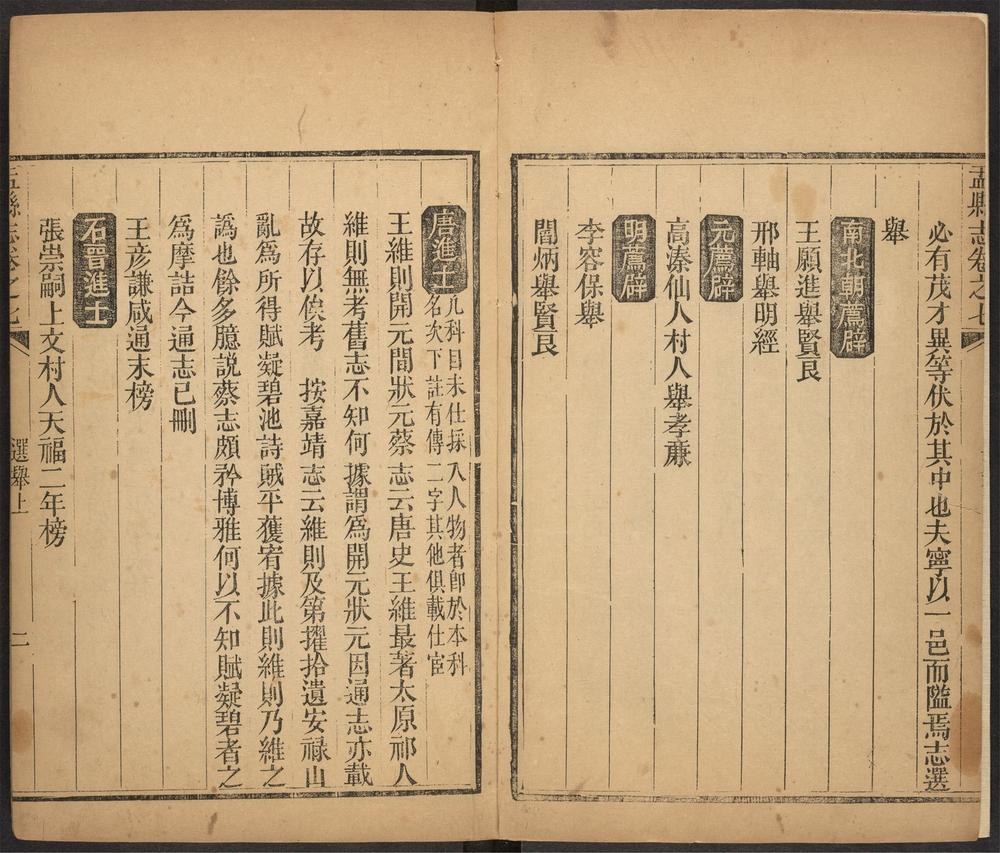 盂縣志卷之七
必有茂才異等伏於其中也夫寧以一邑而隘焉志選
舉
南北朝薦辟
王願進舉賢良
邢軸舉明經
元薦辟
高溱仙人村人舉孝廉
明薦辟
李容保舉
閻炳舉賢良
唐進士
凡科目未仕採入人物者卽於本科
名次下註有傳二字其他俱載仕宦
王維則開元間狀元蔡志云唐史王維最著太原祁人
維則無考舊志不知何據謂爲開元狀元因通志亦載
故存以俟考 按嘉靖志云維則及第擢拾遺安祿山
亂爲所得賦凝碧池詩賊平獲宥據此則維則乃維之
譌也餘多臆説蔡志頗矜博雅何以不知賦凝碧者之
爲摩詰今通志已刪
王彦謙咸通末榜
石晋進士
張崇嗣上文村人天福二年榜
盂縣志卷之七
選舉上
二